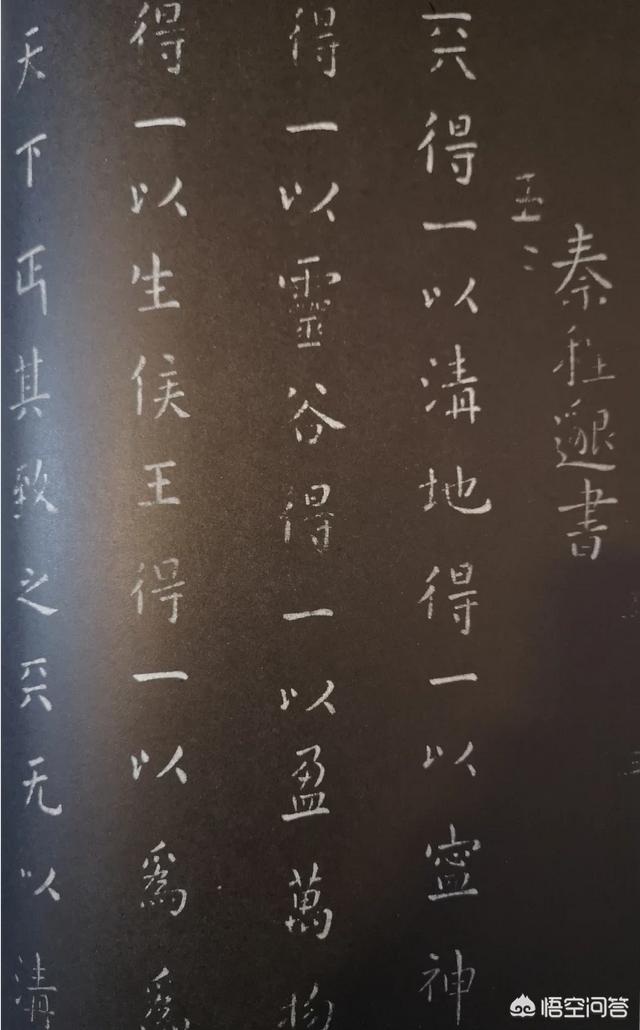 秦程邈書
五二
天得一以清地得一以寧神
得一以靈谷得一以盈萬物
得一以生侯王得一以爲爲
天下正其致之天无以清
悟空问答